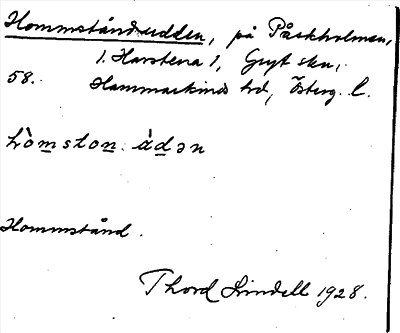 Hommståndsudden, på Påskholmen,
1. Harstena 1, Gryt skn,
58. Hammarkinds hd, Österg. l.
hòm̱stoṉ. ȧ̀ḏən
Hommstånd.
Thord Lindell 1928.